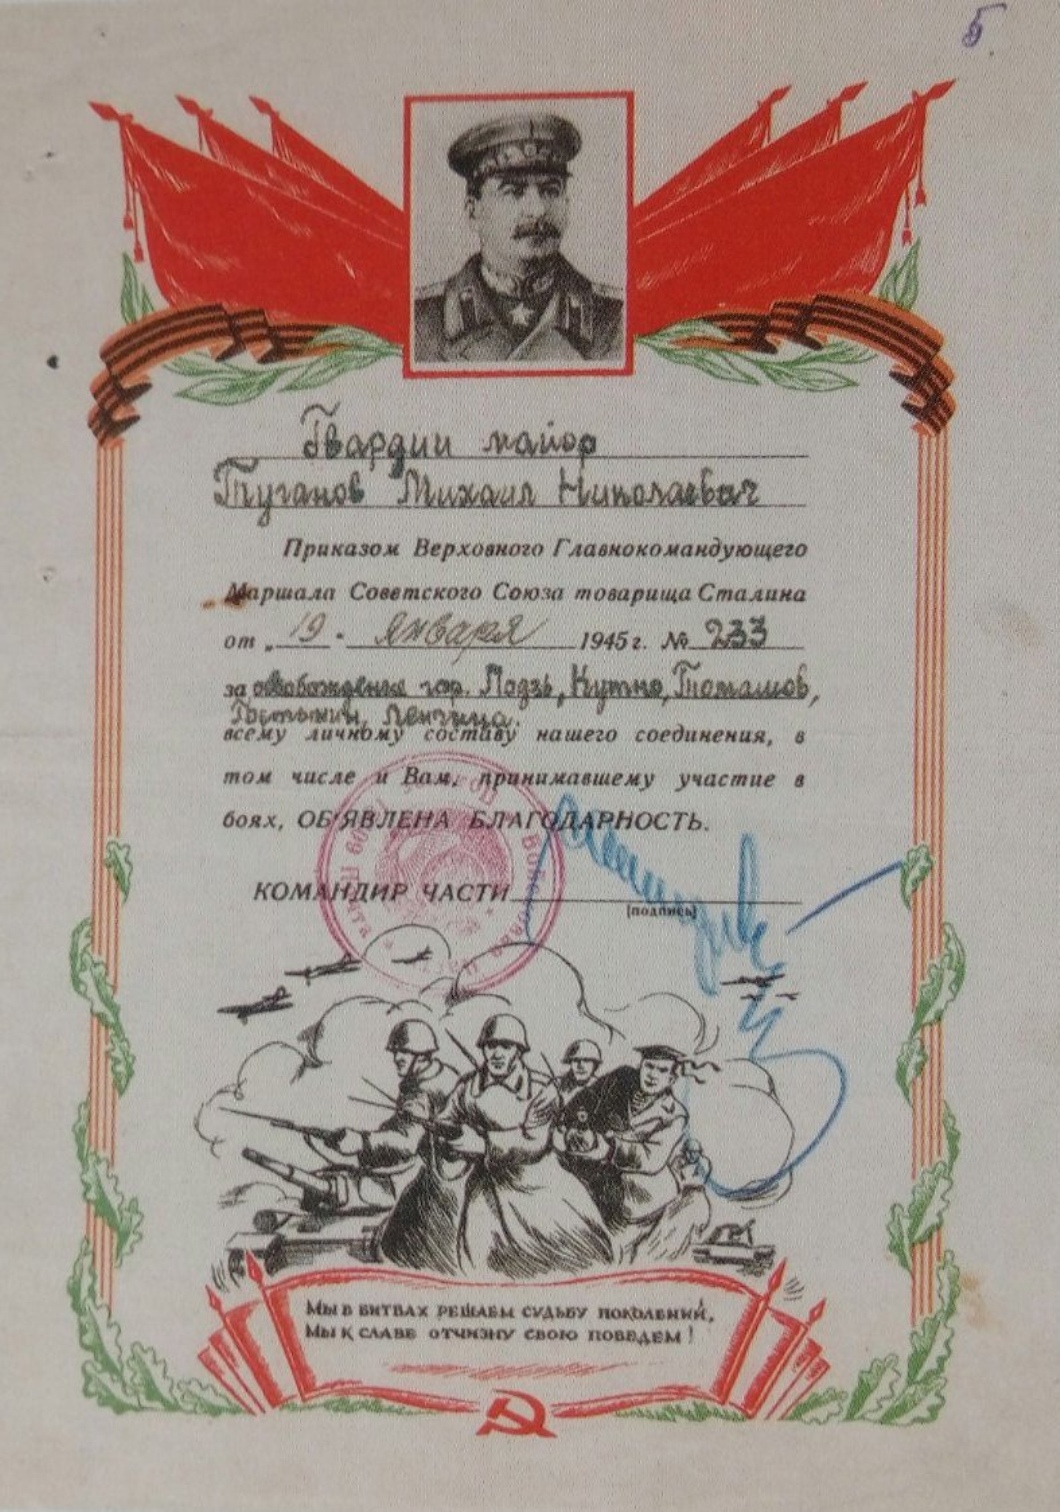 5
Гвардии майор
Туганов Михаил Николаевич
Приказом Верховного Главнокомандующего
Маршала Советского Союза товарища Сталина
от „ 19 “ января 1945 г. № 233
за освобождение гор. Лодзь, Кутно, Томашов,
Гостынин, Ленчица.
всему личному составу нашего соединения, в
том числе и Вам, принимавшему участие в
боях, ОБ'ЯВЛЕНА БЛАГОДАРНОСТЬ.
КОМАНДИР ЧАСТИ
(подпись)
Мы в битвах решаем судьбу поколений,
Мы к славе отчизну свою поведем!